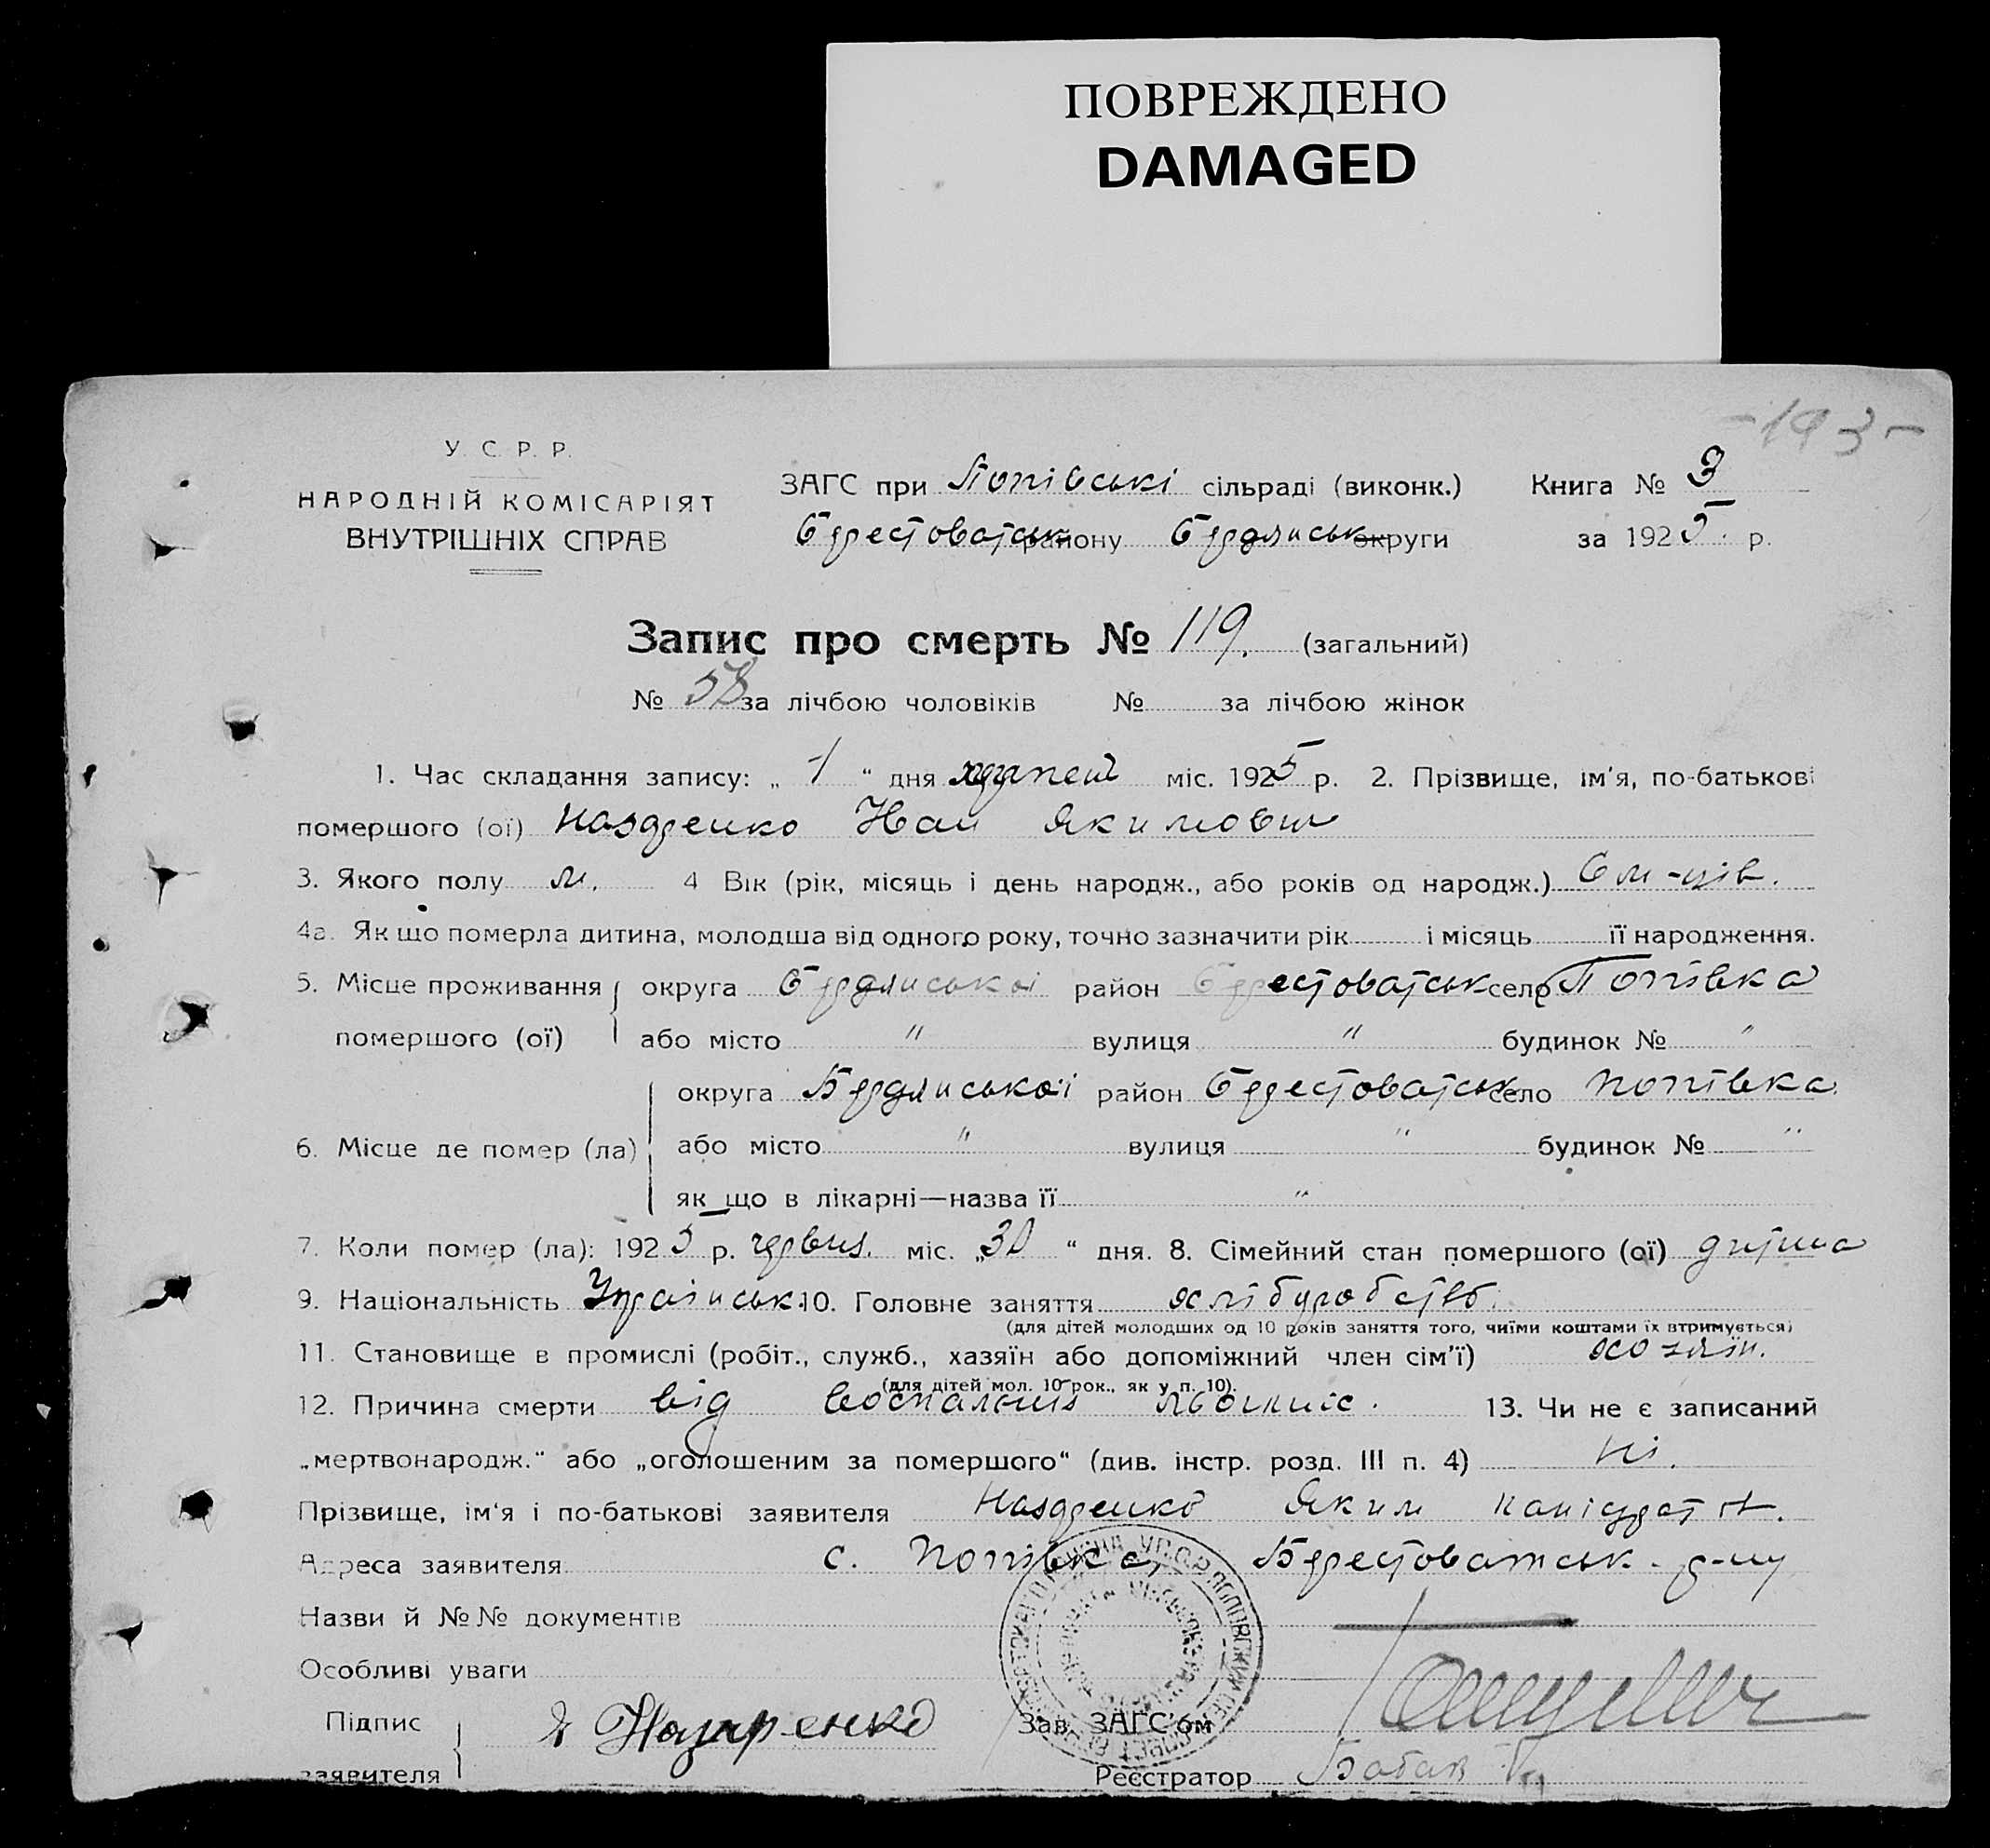 ПОВРЕЖДЕНО
DAMAGED
-193-
У. С. Р. Р.
НАРОДНІЙ КОМІСАРІЯТ
ВНУТРІШНІХ СПРАВ
ЗАГС при Попівські сільраді (виконк.) Книга № 3
Берестоватськ району Бердянськ округи за 1925 р.
Запис про смерть № 119. (загальний)
№ 58 за лічбою чоловіків № за лічбою жінок
1. Час складання запису: „ 1 “ дня міс. 1925 р. 2. Прізвище, ім'я, по-батькові
помершого (ої) Назаренко Иван Якимович
3. Якого полу м. 4 Вік (рік, місяць і день народж., або років од народж.) 6 м-ців.
4а. Як що померла дитина, молодша від одного року, точно зазначити рік і місяць її народження.
5. Місце проживання округа Бердянської район Берестоватськ село Попівка
помершого (ої) або місто " вулиця " будинок № "
округа Бердянської район Берестоватськ село Попівка
6. Місце де помер (ла) або місто " вулиця " будинок № "
як що в лікарні—назва її "
7. Коли помер (ла): 1925 р. червня. міс. „30“ дня. 8. Сімейний стан помершого (ої) дитина
9. Національність Українськ. 10. Головне заняття хлібуробство.
(для дітей молодших од 10 років заняття того, чиїми коштами їх втримується)
11. Становище в промислі (робіт., служб., хазяїн або допоміжний член сім'ї) хозяїн.
(для дітей мол. 10 рок., як у п. 10).
12. Причина смерти від воспаления 13. Чи не є записаний
„мертвонародж.“ або „оголошеним за помершого“ (див. інстр. розд. III п. 4) ні.
Прізвище, ім'я і по-батькові заявителя Назаренко Яким Кондрат
Адреса заявителя с. Попівка, Берестоватськ. р-ну
Назви й №№ документів
Особливі уваги
Підпис Я Назаренко Зав. ЗАГС'ом
заявителя Реєстратор Бабак